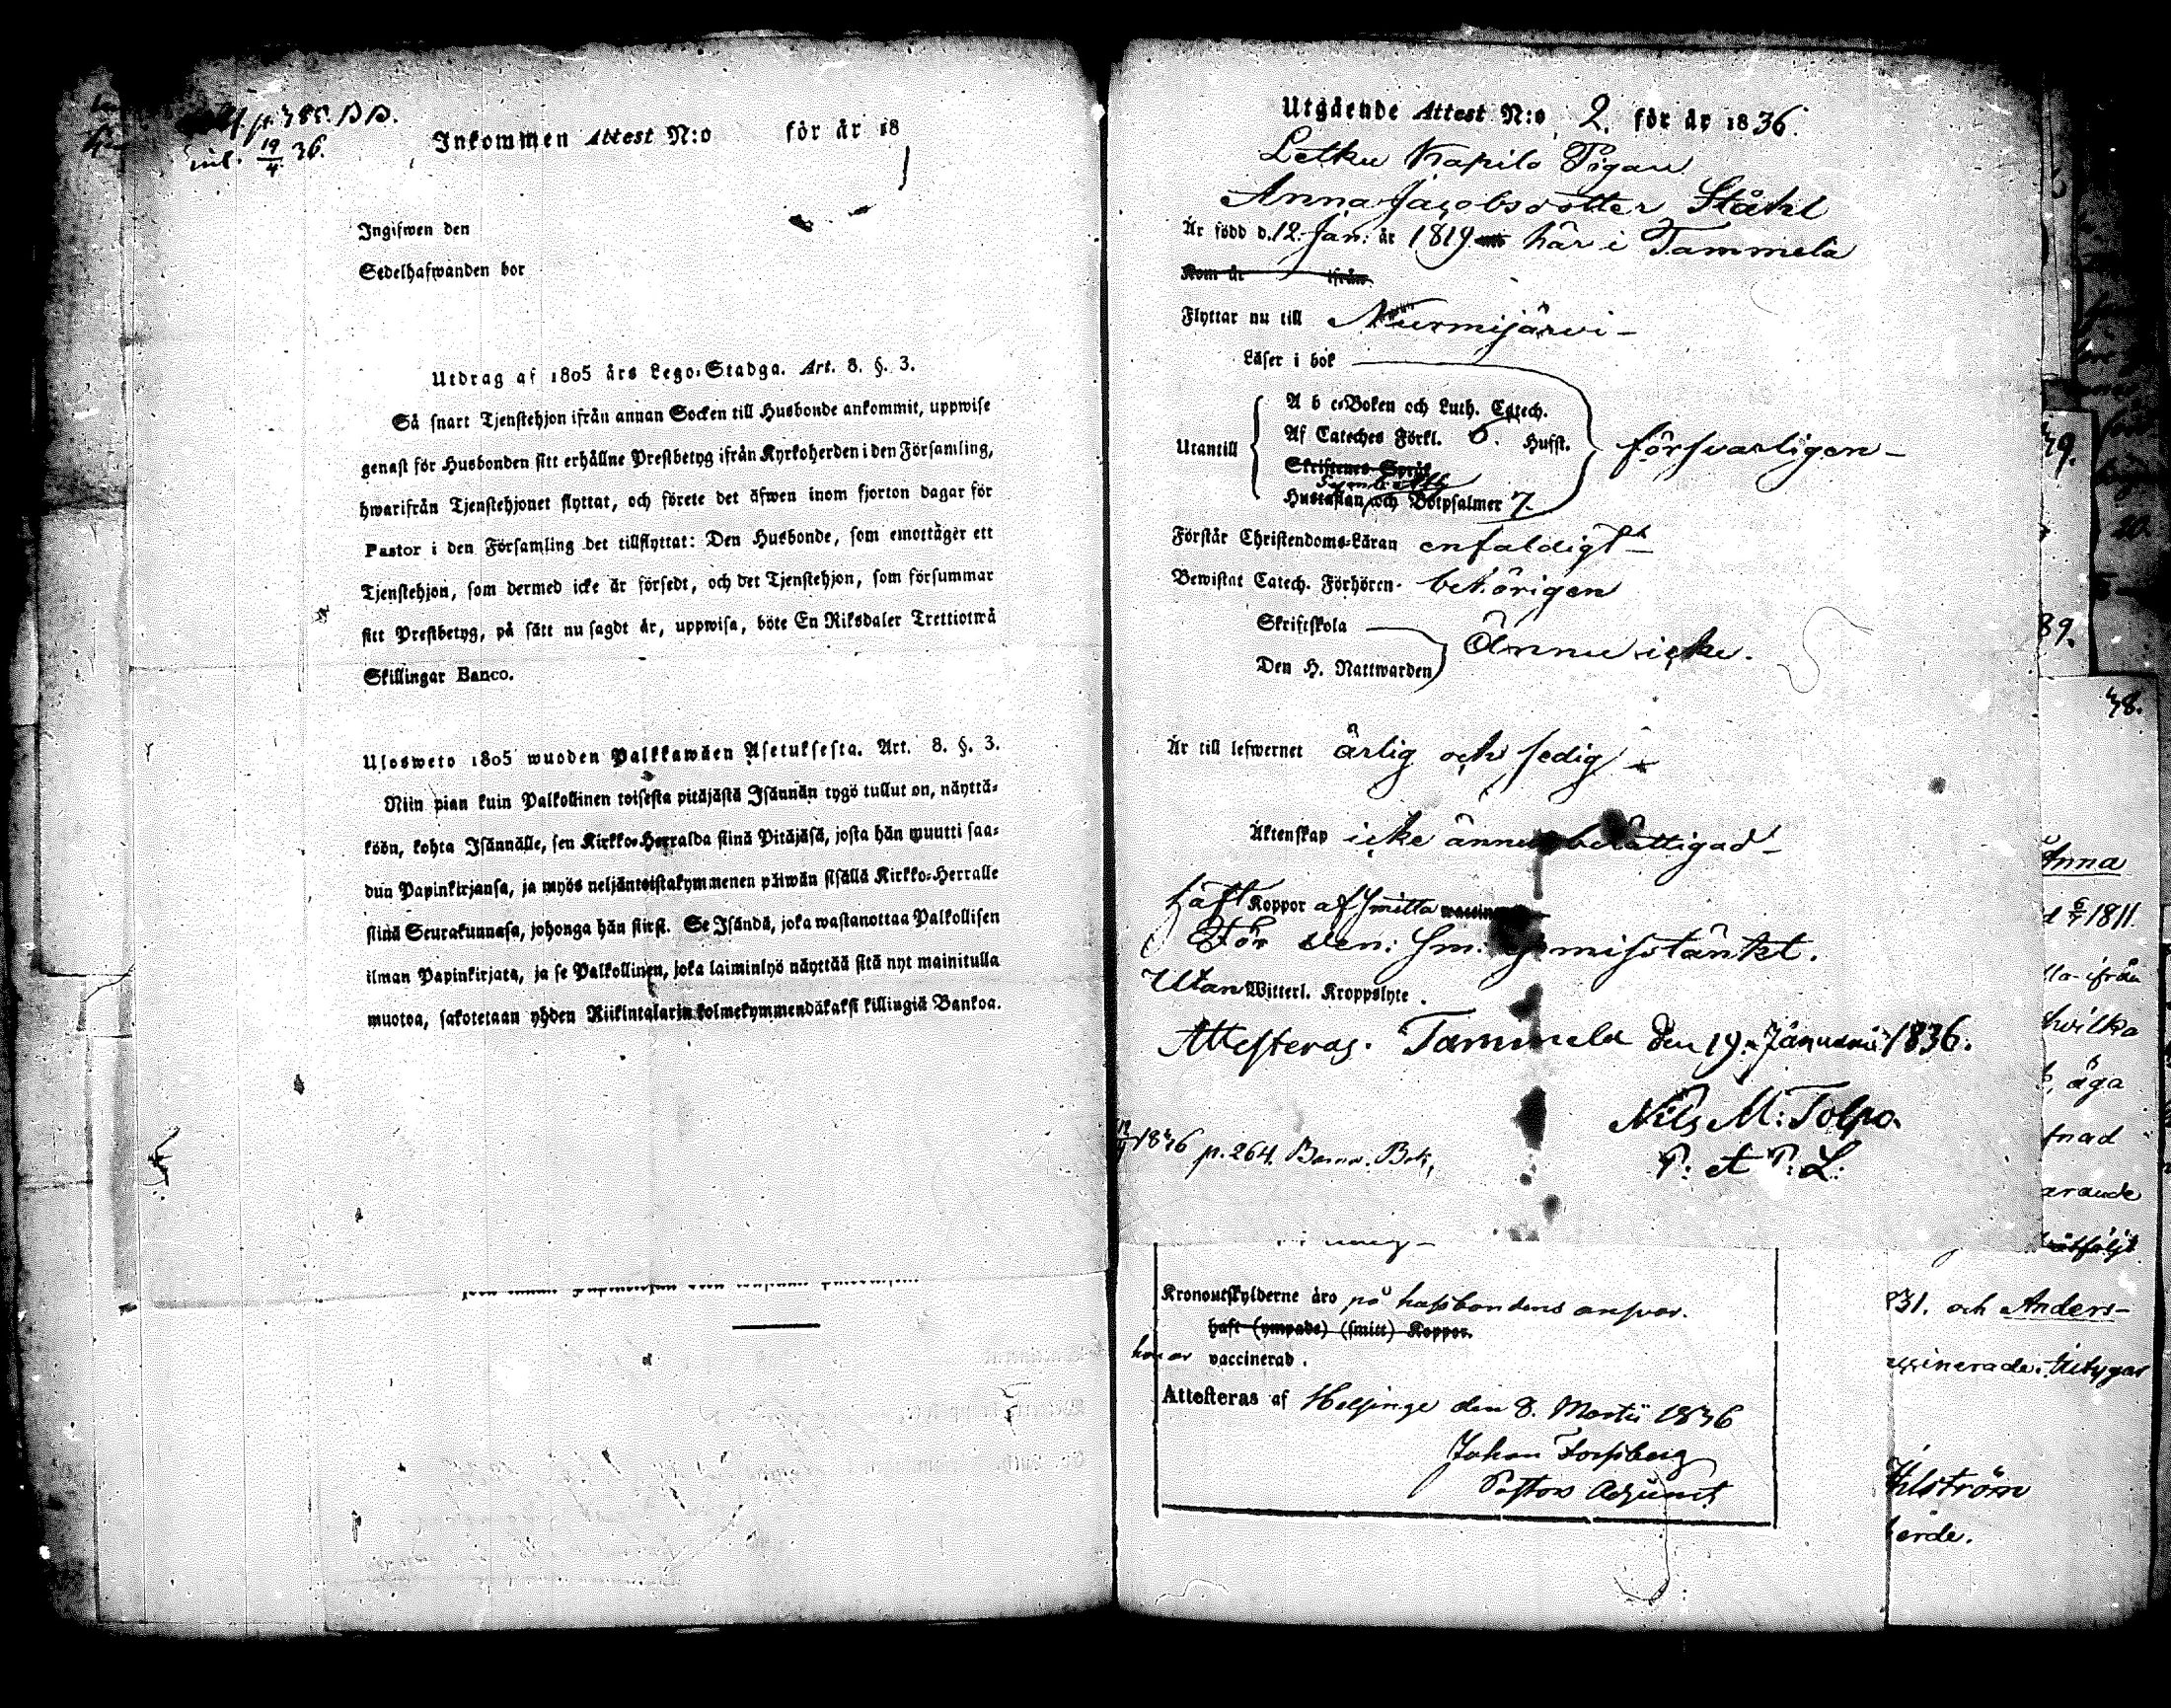 p. 385. BB.
inl. 19/4 36.
Inkommen Attest N:o för år 18
Ingifwen den
Sedelhafwanden bor
Utdrag af 1805 års Lego-Stadga. Art. 8. §. 3.
Så snart Tjenstehjon ifrån annan Socken till Husbonde ankommit, uppwise
genast för Husbonden sitt erhållne Prestbetyg ifrån Kyrkoherden i den Församling,
hwarifrån Tjenstehjonet flyttat, och förete det äfwen inom fjorton dagar för
Pastor i den Församling det tillflyttat: Den Husbonde, som emottager ett
Tjenstehjon, som dermed icke är försedt, och det Tjenstehjon, som försummar
sitt Prestbetyg, på sätt nu sagdt är, uppwisa, böte En Riksdaler Trettiotwå
Skillingar Banco.
Ulosweto 1805 wuoden Palkkawäen Asetuksesta. Art. 8. §. 3.
Niin pian kuin Palkollinen toisesta pitäjästä Isännän tygö tullut on, näyttä-
köön, kohta Isännälle, sen Kirkko-Herralda siinä Pitäjäsä, josta hän muutti saa-
dun Papinkirjansa, ja myös neljäntoistakymmenen päiwän sisällä Kirkko-Herralle
siinä Seurakunnasa, johonga hän siirsi. Se Isändä, joka wastanottaa Palkollisen
ilman Papinkirjata, ja se Palkollinen, joka laiminlyö näyttää sitä nyt mainitulla
muotoa, sakotetaan yhden Riikintalarin kolmekymmendäkaksi killingiä Bankoa.
Utgående Attest N:o 2. för år 1836.
Letku Kapila Pigan
Anna Jacobsdotter Ståhl
Är född d. 12. Jan: år 1819 här i Tammela
Kom år ifrån
Flyttar nu till Nurmijärwi -
Läser i bok
A b c-Boken och Luth. Catech.
Utantill Af Cateches Förkl. 6. Husst. försvarligen -
Skriftenes Språk
Symb: Ath
Hustaflan och Botpsalmer 7.
Förstår Christendoms-Läran enfaldigt -
Bewistat Catech. Förhören behörigen
Skriftskola
Ännu icke.
Den H. Nattwarden
Är till lefwernet ärlig och sedig
Äktenskap icke ännu berättigad -
haft Koppor af smitta
För Ven: Sm: ej misstänkt.
Utan Witterl. Kroppslyte.
Attesteras. Tammela den 19. Januarii 1836.
Nils M: Tolpo.
P. et P. L:
1836 p. 264. Barnn. Bok,
Kronoutskylderne äro på husbondens ansvar.
haft (ympade) (smitt) Koppor.
hon är vaccinerad.
Attesteras af Helsinge den 8. Martii 1836
Johan Forsberg
Pastors Adjunct
39.
20.
89.
38.
Anna
1811.
ifrån
hvilka
äga
31. och Anders-